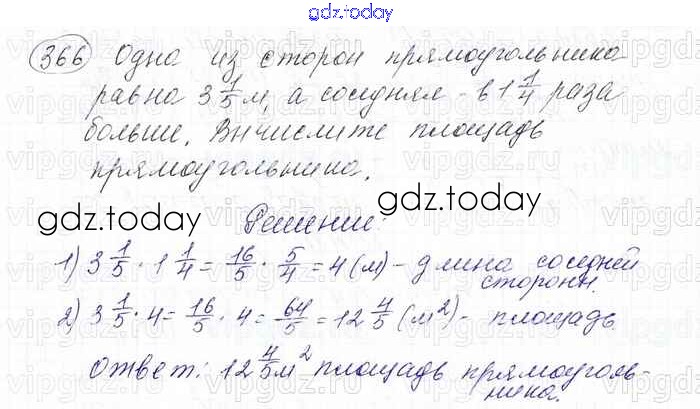 gdz.today
366 Одна из сторон прямоугольника
равна 3 1/5 м, а соседняя - в 1 1/4 раза
больше. Вычислите площадь
прямоугольника.
gdz.today
gdz.today
Решение:
1) 3 1/5 · 1 1/4 = 16/5 · 5/4 = 4 (м) - длина соседней
стороны.
2) 3 1/5 · 4 = 16/5 · 4 = 64/5 = 12 4/5 (м²) - площадь
Ответ: 12 4/5 м² площадь прямоуголь-
ника.